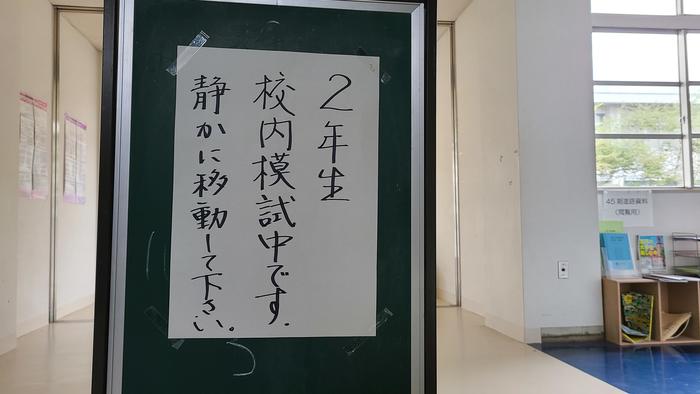 2年生
校内模試中です.
静かに移動して下さい。
45期進路資料
(閲覧用)